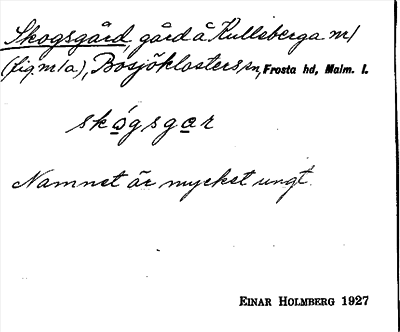 Skogsgård, gård å Kullsberga m/
Bosjöklosters sn, Frosta hd, Malm. l.
skógsgar
Namnet är mycket ungt.
EINAR HOLMBERG 1927